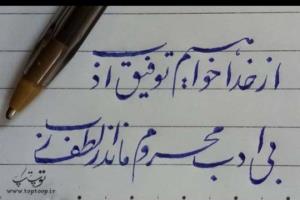 از خدا خواهیم توفیق ادب
بی ادب محروم ماند از لطف رب
www.toptoop.ir